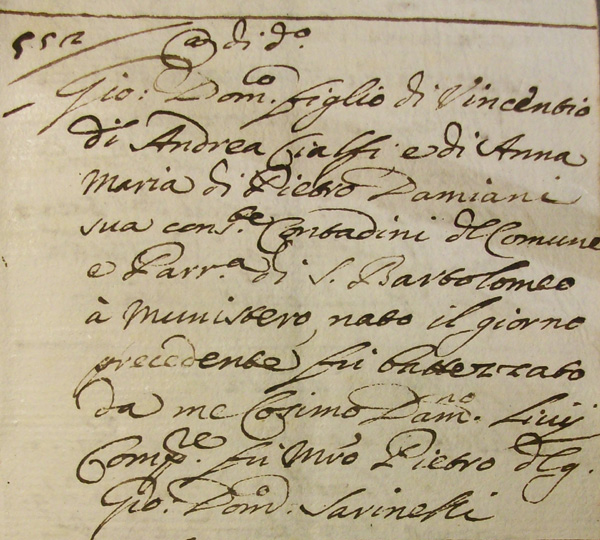 552 A di d.o
Gio: Dom.co figlio di Vincentio
di Andrea Cialfi e di Anna
Maria di Pietro Damiani
sua cons.te Contadini del Comune
e Parr.a di S. Bartolomeo
à Munistero, nato il giorno
precedente fù battezzato
da me Cosimo Dam.no Livij
Comp.re fù Mro Pietro del q.
Gio: Dom.o